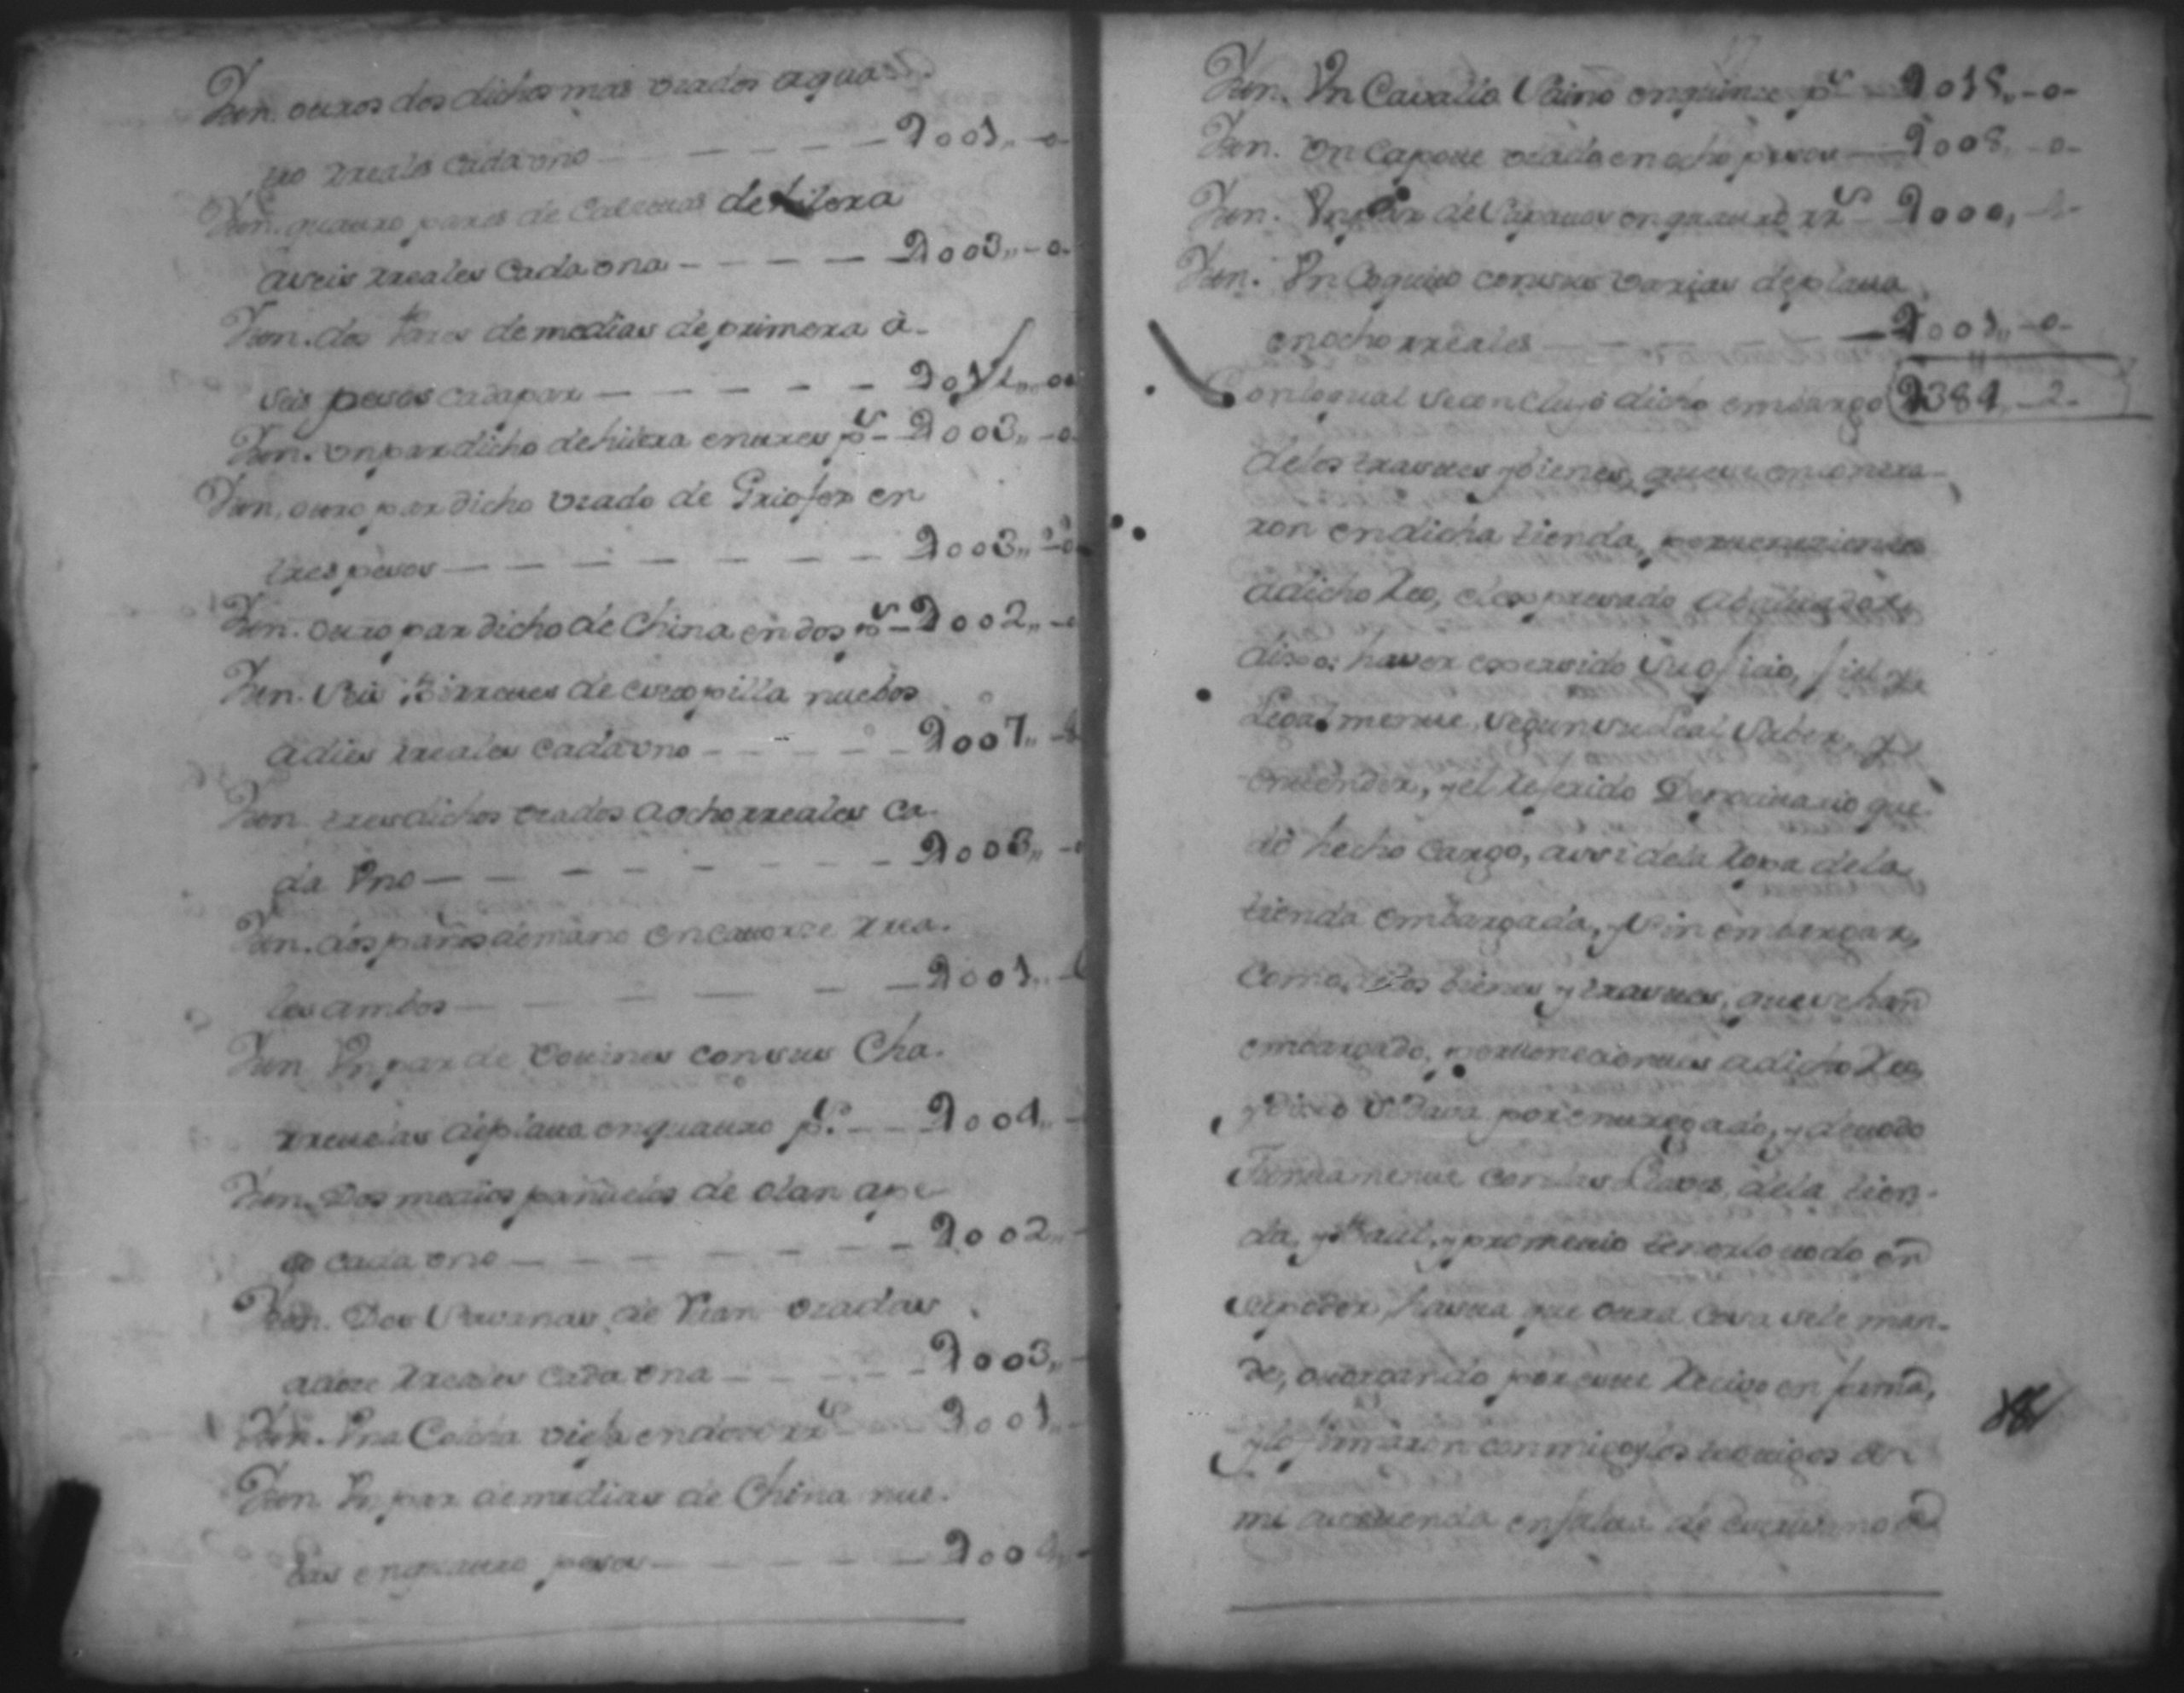 Iten. otros dos dichos mas vsados a quat
tro rreales cada vno — — — — 2001,,-0-
Iten. quatro pares de Calcetas de hilera
a seis rreales Cada vna — — — — 2003,,-0-
Iten. dos Pares de medias de primera à
seis pesos cada par — — — — 2012,,-0
Iten. vn par dicho de hilera en tres ps - 2003,,-0-
Iten. otro par dicho vsado de en
tres pesos — — — — 2003,,-0
Iten. otro par dicho de China en dos ps - 2002,,-
Iten. Seis Birretes de cotopilla nuebos
a dies rreales cada vno — — — — 2007,,-
Iten. tres dichos vsados a ocho rreales ca-
da Vno — — — — 2003,,-
Iten. dos paños de mano en catorze rrea-
les ambos — — — — 2001,,-
Iten Vn par de Votines con sus Cha-
rretelas de plata en quatro ps. — 2004,,-
Iten. Dos medios pañuelos de olan a pe-
so cada vno — — — — 2002,,-
Iten. Dos Savanas de Ruan vsadas
a doze rreales cada vna — — — — 2003,,-
Iten. Vna Colcha vieja en doze rrs 2001,,-
Iten. Vn par de medias de China nue-
bas en quatro pesos — — — — 2004,,-
Iten. Vn Cavallo Saino en quinse ps — 2015,,-0-
Iten. vn Capote vsado en ocho pesos — 2008,,-0-
Iten. Vn par de Sapatos en quatro rrs — 2000,,-4-
Iten. Vn Coquito con sus varias de plata
en ocho rreales — — — — 2001,,-0-
Con lo qual se concluyó dicho embargo 2384,,-2-
de los trastes y bienes, que se encontra-
ron en dicha tienda, pertenezientes
a dicho Reo, el expresado Abaluador
dixo: haver exersido su oficio, fiel y
Legalmente, segun su Leal Saber, y
entender, y el referido Depocitario que-
dò hecho Cargo, assi de la Ropa de la
tienda embargada, y sin embargar,
como, de los bienes y trastes, que se han
embargado, pertenecientes a dicho Reo
y Dixo se Dava por entregado, y de todo
Juntamente con las Llaves, de la tien-
da, y Baul, y prometio tenerlo todo en
su poder, hasta que otra Cosa se le man-
de, otorgando por este Recivo en forma,
y lo firmaron conmigo y los testigos de
mi asistencia en falta de escrivano